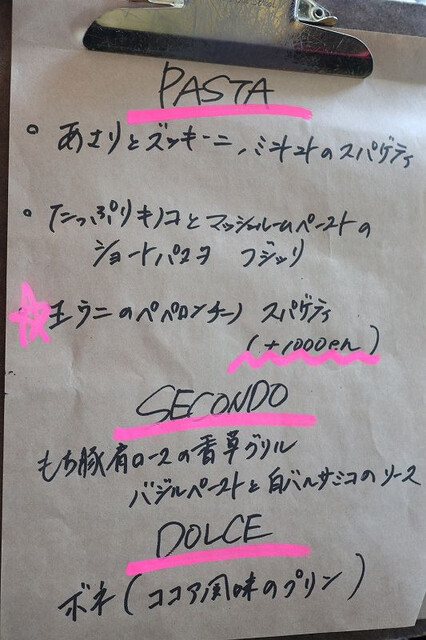 PASTA
° あさりとズッキーニ、ミニトマトのスパゲティ
° たっぷりキノコとマッシュルームペーストの
ショートパスタ フジッリ
☆ 生ウニのペペロンチーノ スパゲティ
(+1000en)
SECONDO
もち豚肩ロースの香草グリル
バジルペーストと白バルサミコのソース
DOLCE
ボネ(ココア風味のプリン)